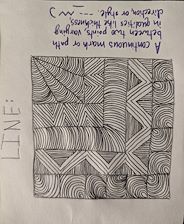 LINE:
A continuous mark or path
between two points, varying
in qualities like thickness,
direction or style.